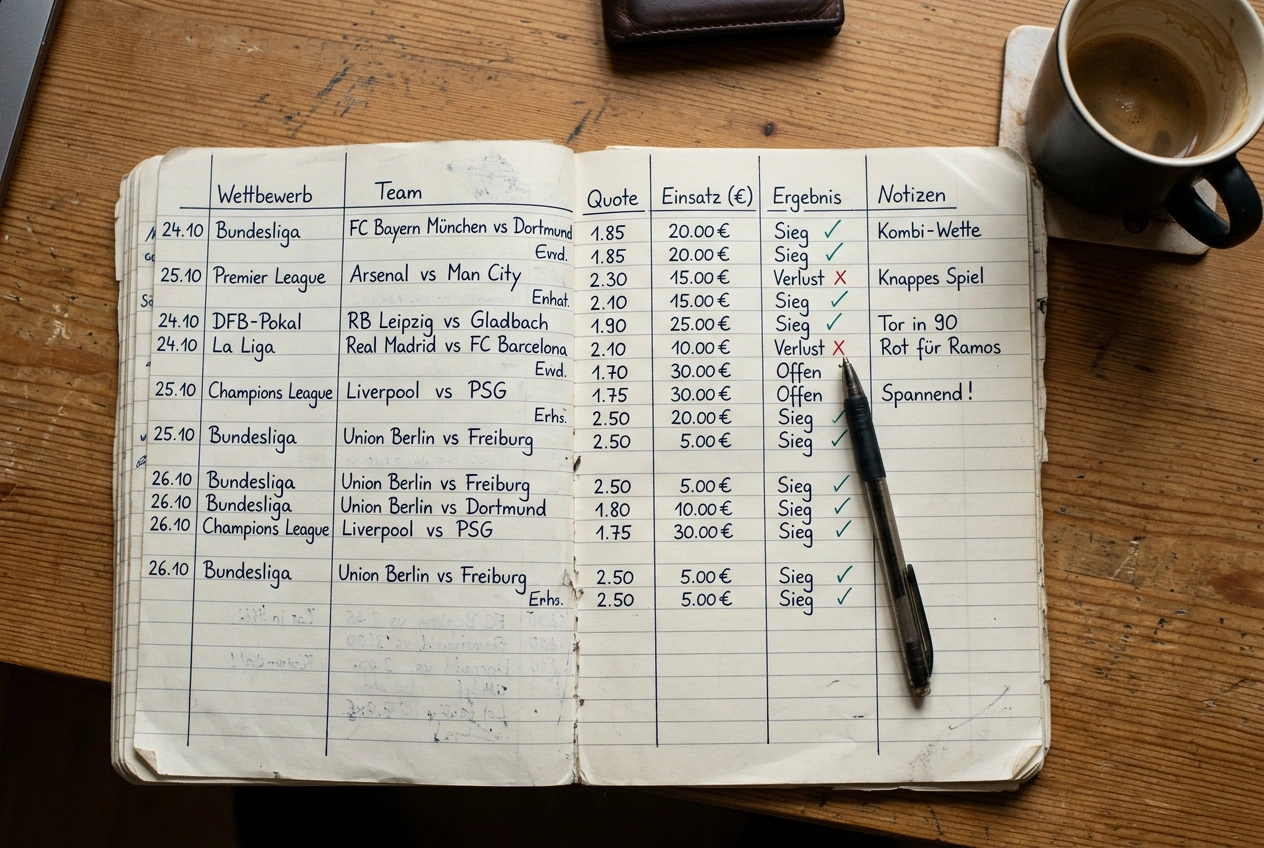 Wettbewerb Team Quote Einsatz (€) Ergebnis Notizen
24.10 Bundesliga FC Bayern München vs Dortmund 1.85 20.00 € Sieg ✓ Kombi-Wette
1.85 20.00 € Sieg ✓
25.10 Premier League Arsenal vs Man City 2.30 15.00 € Verlust X Knappes Spiel
Enhat. 2.10 15.00 € Sieg ✓
24.10 DFB-Pokal RB Leipzig vs Gladbach 1.90 25.00 € Sieg ✓ Tor in 90
24.10 La Liga Real Madrid vs FC Barcelona 2.10 10.00 € Verlust X Rot für Ramos
1.70 30.00 € Offen
25.10 Champions League Liverpool vs PSG 1.75 30.00 € Offen Spannend!
Erhs. 2.50 20.00 € Sieg ✓
25.10 Bundesliga Union Berlin vs Freiburg 2.50 5.00 € Sieg ✓
26.10 Bundesliga Union Berlin vs Freiburg 2.50 5.00 € Sieg ✓
26.10 Bundesliga Union Berlin vs Dortmund 1.80 10.00 € Sieg ✓
26.10 Champions League Liverpool vs PSG 1.75 30.00 € Sieg ✓
26.10 Bundesliga Union Berlin vs Freiburg 2.50 5.00 € Sieg ✓
Erhs. 2.50 5.00 € Sieg ✓